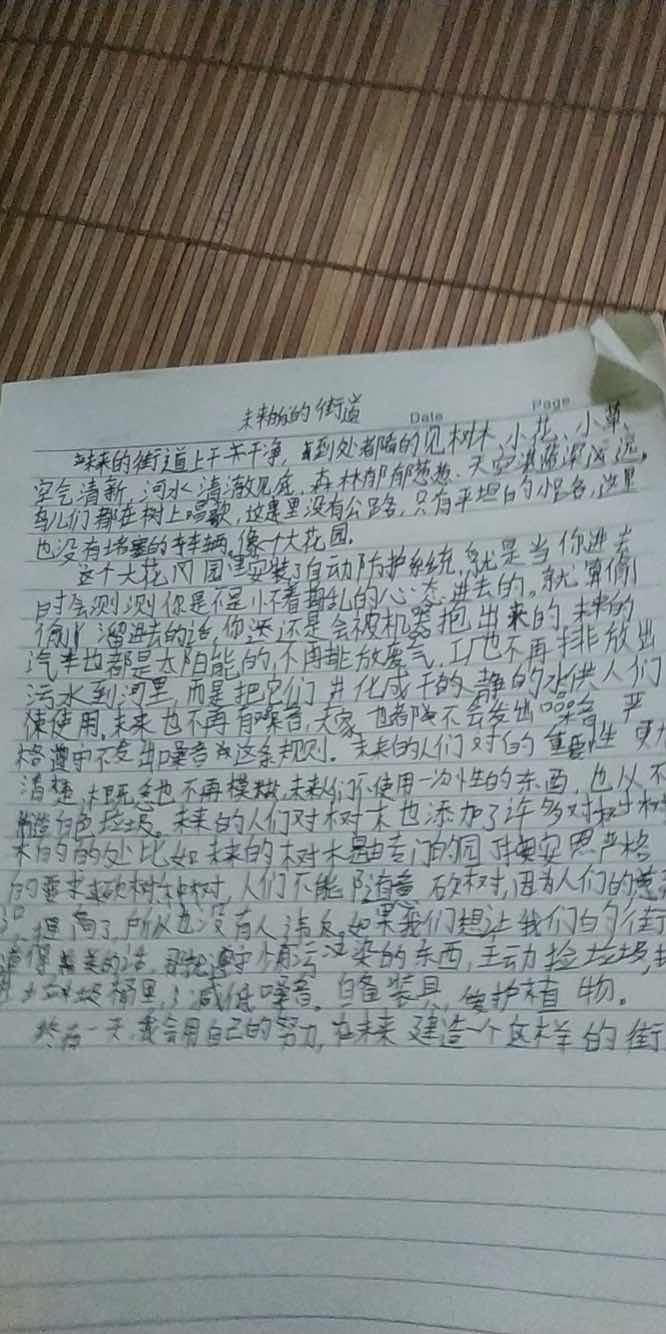 未来的街道
Date
Page
未来的街道上干干净净,到处都随的见树木、小花、小草、
空气清新,河水清澈见底,森林郁郁葱葱、天空
鸟儿们都在树上唱歌,这里没有公路,只有平坦的小路,这里
也没有堵塞的车辆,像一个大花园。
这个大花园里安装了自动防护系统,就是当你进去
时会测测你是不是小着乱的心态进去的。就算偷
偷溜进去的话,你还是会被机器抱出来的,未来的
汽车也都是太阳能的,不再排放废气,工厂也不再排放出
污水到河里,而是把它们净化成干的静的水供人们
使用。未来也不再有噪音,大家也都不会发出噪音,严
格遵守不发出噪音这条规则。未来的人们对的重要性更加
清楚,概念也不再模糊,未来人们不使用一次性的东西,也从不
制造白色垃圾。未来的人们对树木也添加了许多对树
木的的处比如未来的树木是由专门的按照严格
的要求砍树种树,人们不能随意砍树,因为人们的意
识提高了,所以也没有人违反。如果我们想让我们的街
道得美的话,污染的东西,主动捡垃圾,
垃圾桶里,减低噪音。自备餐具,爱护植物。
终有一天,我会用自己的努力,在未来建造一个这样的街